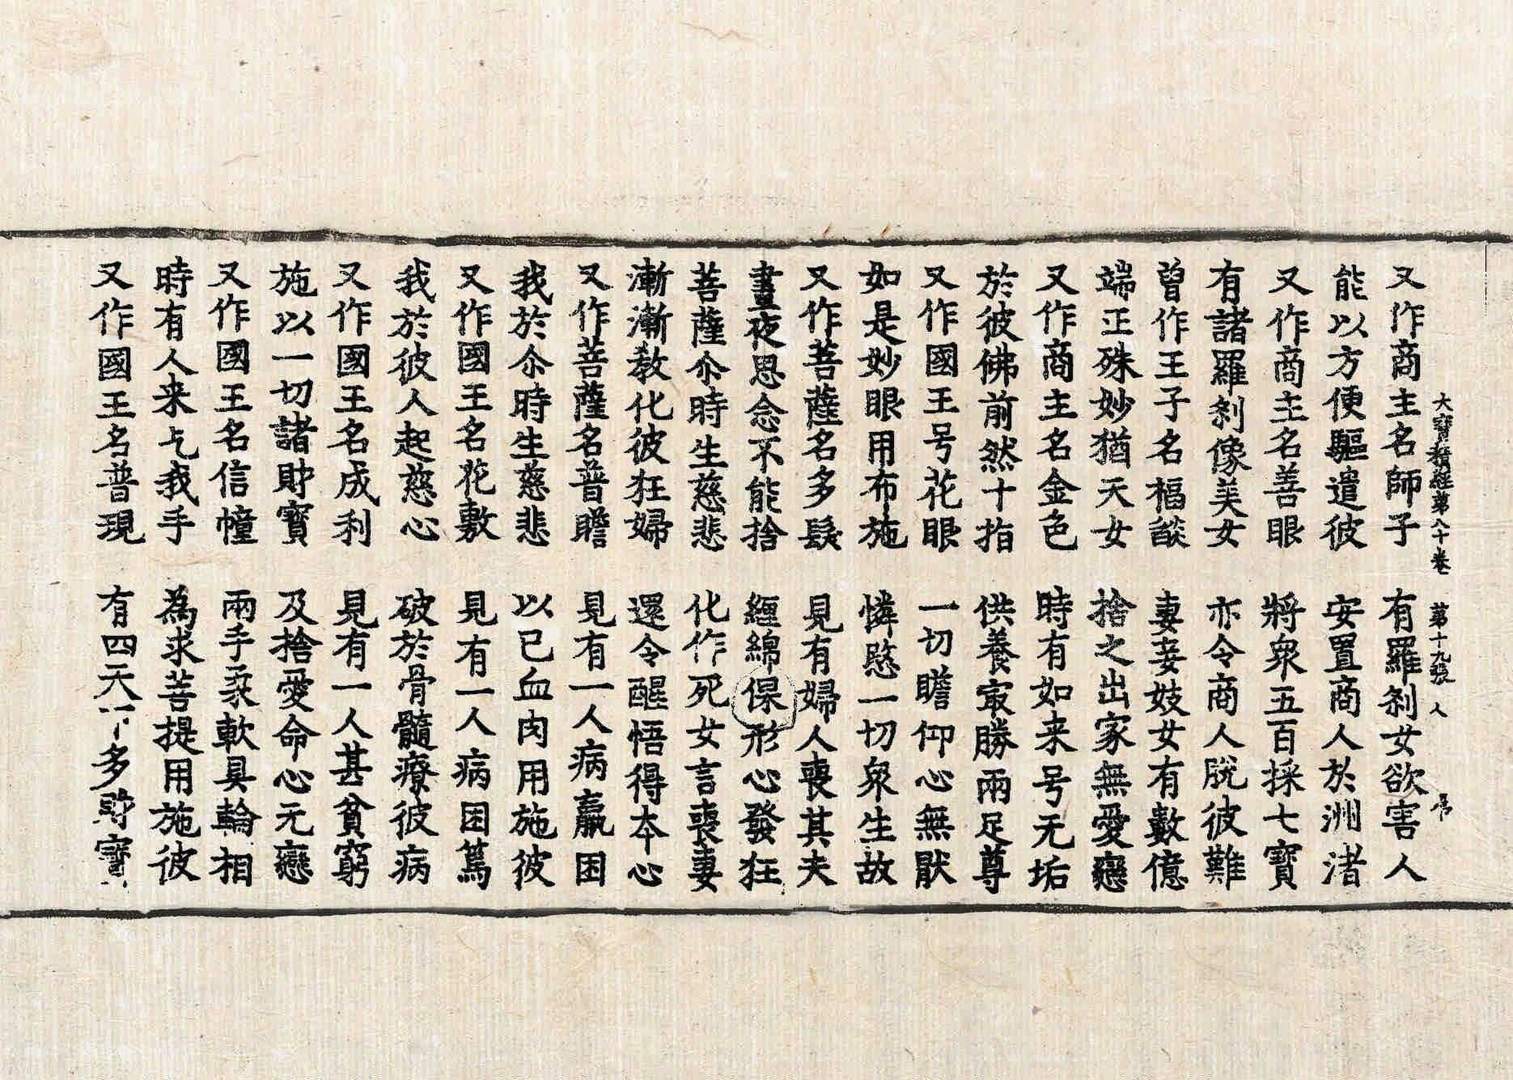 大寶積經第八十卷 第十九張 人 帛
又作商主名師子 有羅刹女欲害人
能以方便驅遣彼 安置商人於洲渚
又作商主名善眼 將衆五百採七寶
有諸羅刹像美女 亦令商人脫彼難
曾作王子名福焰 妻妾妓女有數億
端正殊妙猶天女 捨之出家無愛戀
又作商主名金色 時有如来号无垢
於彼佛前然十指 供養㝡勝兩足尊
又作國王号花眼 一切瞻仰心無猒
如是妙眼用布施 憐愍一切衆生故
又作菩薩名多髮 見有婦人喪其夫
晝夜思念不能捨 纏綿倮形心發狂
菩薩尒時生慈悲 化作死女言喪妻
漸漸教化彼狂婦 還令醒悟得夲心
又作菩薩名普瞻 見有一人病羸困
我於尒時生慈悲 以己血肉用施彼
又作國王名花敷 見有一人病困篤
我於彼人起慈心 破於骨髓療彼病
又作國王名成利 見有一人甚貧窮
施以一切諸財寶 及捨愛命心无戀
又作國王名信幢 兩手柔軟具輪相
時有人来乞我手 為求菩提用施彼
又作國王名普現 有四天下多財寶